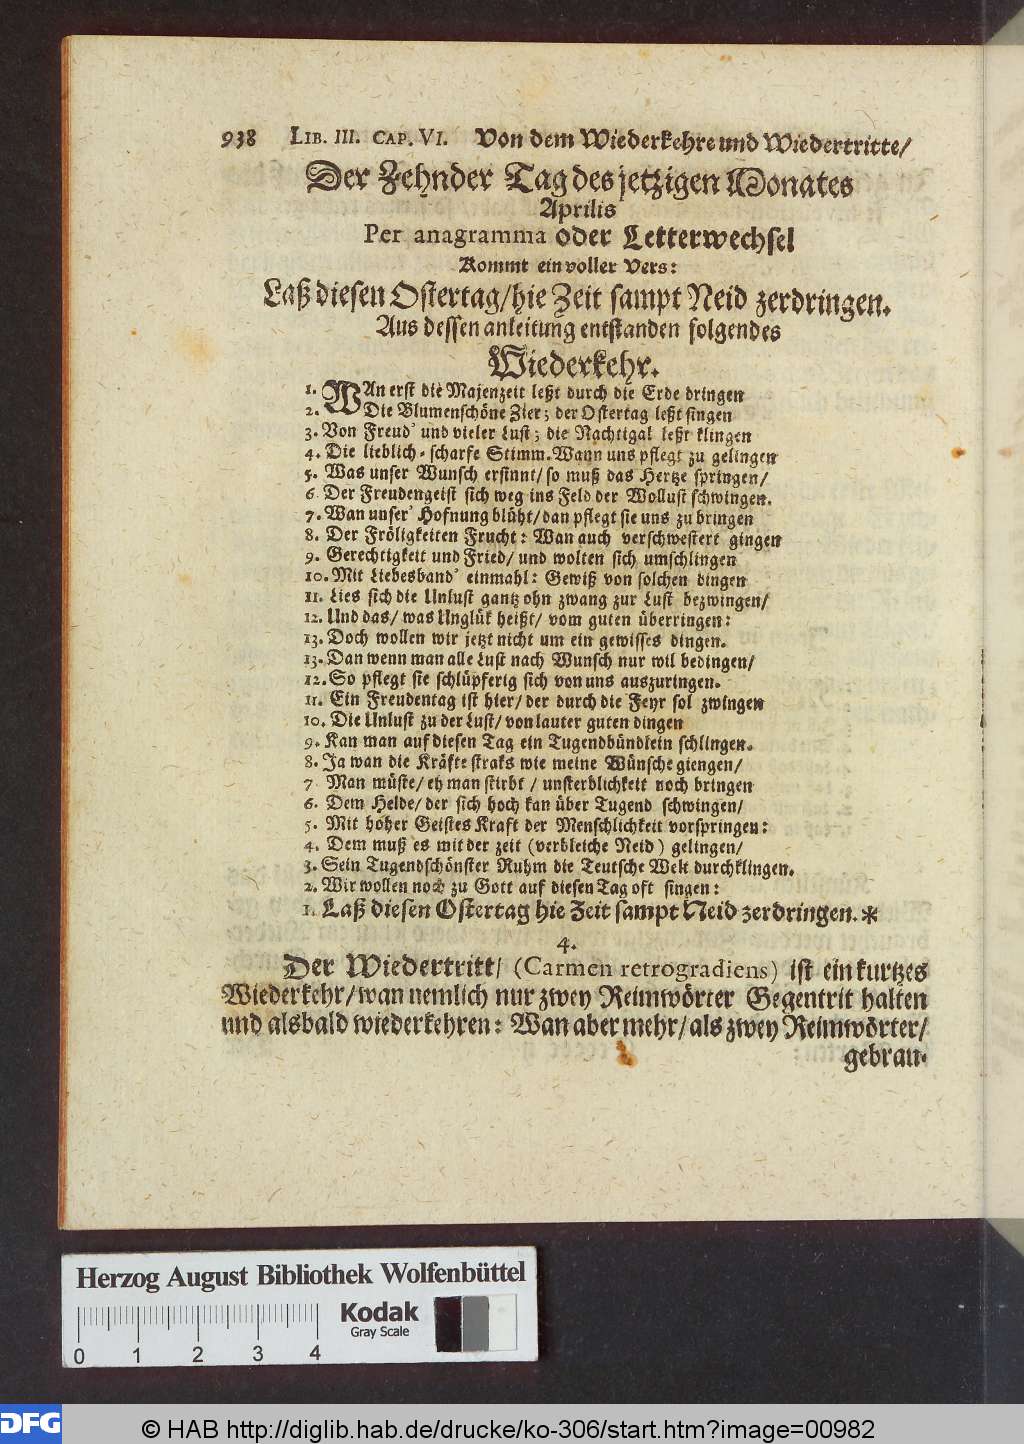 938 LIB. III. CAP. VI. Von dem Wiederkehre und Wiedertritte/
Der Zehnder Tag des jetzigen Monates
Aprilis
Per anagramma oder Letterwechsel
Kommt ein voller Vers:
Laß diesen Ostertag/hie Zeit sampt Neid zerdringen.
Aus dessen anleitung entstanden folgendes
Wiederkehr.
1. WAn erst die Majenzeit leßt durch die Erde dringen
2. Die Blumenschöne Zier; der Ostertag leßt singen
3. Von Freud' und vieler Lust; die Nachtigal leßt klingen
4. Die lieblich-scharfe Stimm. Wann uns pflegt zu gelingen
5. Was unser Wunsch ersinnt/so muß das Hertze springen/
6 Der Freudengeist sich weg ins Feld der Wollust schwingen.
7. Wan unser' Hofnung blüht/dan pflegt sie uns zu bringen
8. Der Fröligkeiten Frucht: Wan auch verschwestert gingen
9. Gerechtigkeit und Fried/ und wolten sich umschlingen
10. Mit Liebesband' einmahl: Gewiß von solchen dingen
11. Lies sich die Unlust gantz ohn zwang zur Lust bezwingen/
12. Und das/ was Unglük heißt/ vom guten überringen:
13. Doch wollen wir jetzt nicht um ein gewisses dingen.
13. Dan wenn man alle Lust nach Wunsch nur wil bedingen/
12. So pflegt sie schlüpferig sich von uns auszuringen.
11. Ein Freudentag ist hier/ der durch die Feyr sol zwingen
10. Die Unlust zu der Lust/ von lauter guten dingen
9. Kan man auf diesen Tag ein Tugendbündlein schlingen.
8. Ja wan die Kräfte straks wie meine Wünsche giengen/
7 Man müste/ eh man stirbt / unsterblichkeit noch bringen
6. Dem Helde/ der sich hoch kan über Tugend schwingen/
5. Mit hoher Geistes Kraft der Menschlichkeit vorspringen:
4. Dem muß es mit der zeit (verbleiche Neid) gelingen/
3. Sein Tugendschönster Ruhm die Teutsche Welt durchklingen.
2. Wir wollen noch zu Gott auf diesen Tag oft singen:
1. Laß diesen Ostertag hie Zeit sampt Neid zerdringen.*
4.
Der Wiedertritt/ (Carmen retrogradiens) ist ein kurtzes
Wiederkehr/wan nemlich nur zwey Reimwörter Gegentrit halten
und alsbald wiederkehren: Wan aber mehr/als zwey Reimwörter/
gebrau-
Herzog August Bibliothek Wolfenbüttel
Kodak
Gray Scale
0 1 2 3 4
DFG © HAB http://diglib.hab.de/drucke/ko-306/start.htm?image=00982